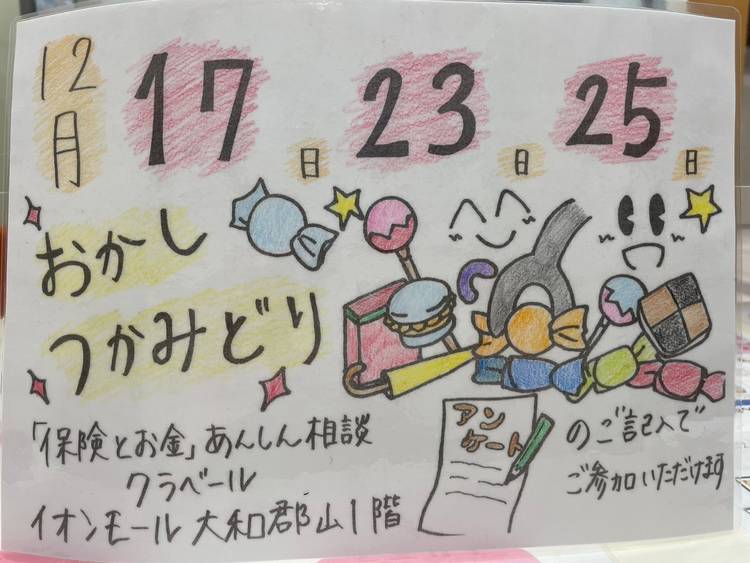 12月 17日 23日 25日
おかし
つかみどり
「保険とお金」あんしん相談
クラベール
イオンモール大和郡山1階
アン
ケート
のご記入で
ご参加いただけます